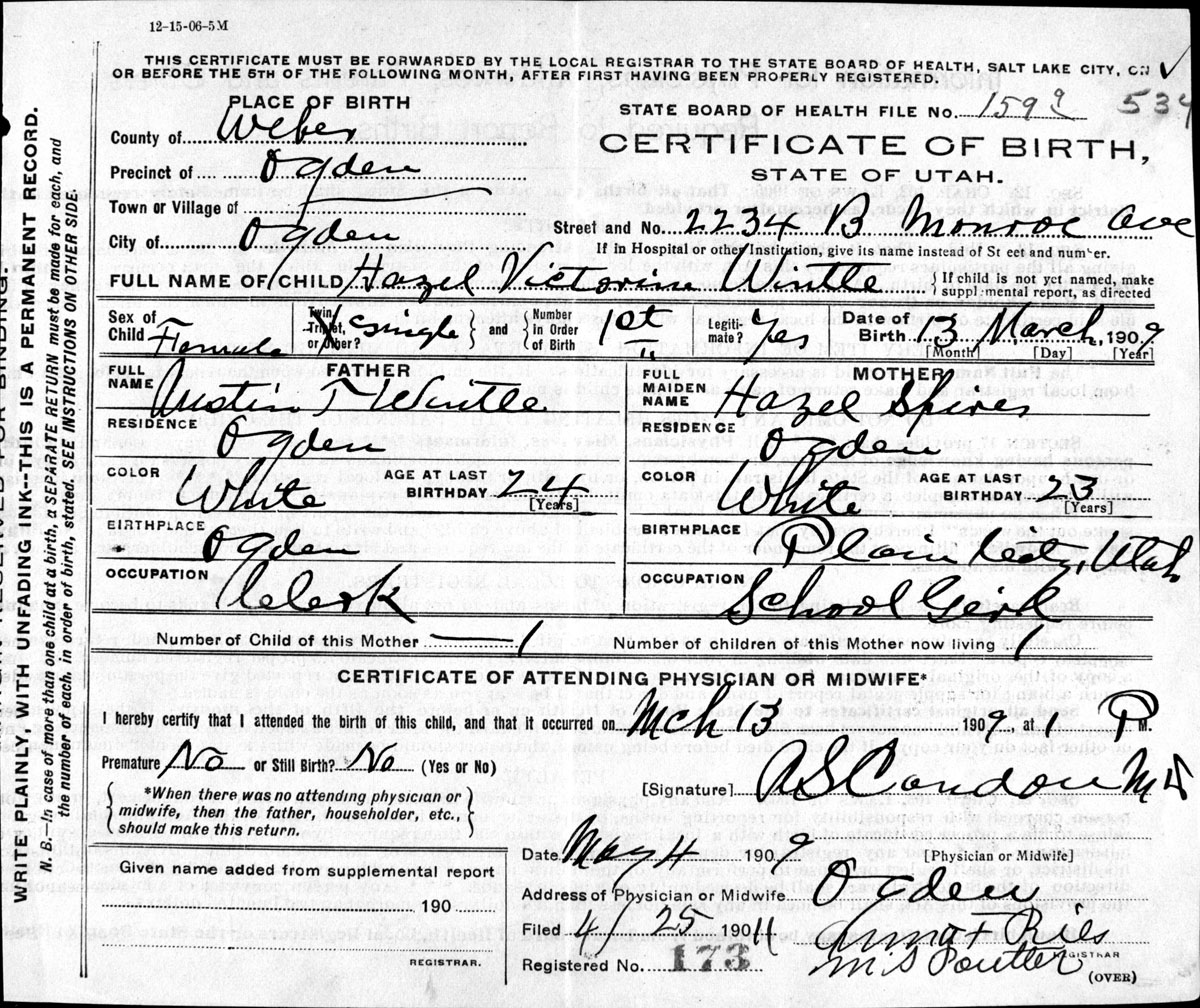 12-15-06-5M
THIS CERTIFICATE MUST BE FORWARDED BY THE LOCAL REGISTRAR TO THE STATE BOARD OF HEALTH, SALT LAKE CITY, ON
OR BEFORE THE 5TH OF THE FOLLOWING MONTH, AFTER FIRST HAVING BEEN PROPERLY REGISTERED.
PLACE OF BIRTH
STATE BOARD OF HEALTH FILE No. 1599 534
County of Weber
CERTIFICATE OF BIRTH,
Precinct of Ogden
STATE OF UTAH.
Town or Village of
City of Ogden
Street and No. 2234 B Monroe Ave
If in Hospital or other Institution, give its name instead of St eet and number.
FULL NAME OF CHILD Hazel Victorine Wintle { If child is not yet named, make supplemental report, as directed
Sex of Child Female
Twin, Triplet, or Other? Single } and { Number in Order of Birth 1st
Legitimate? Yes
Date of Birth 13 March, 1909
[Month] [Day] [Year]
FATHER
FULL NAME Austin F Wintle
RESIDENCE Ogden
COLOR White AGE AT LAST BIRTHDAY 24 [Years]
BIRTHPLACE Ogden
OCCUPATION Clerk
MOTHER
MAIDEN NAME Hazel Spires
RESIDENCE Ogden
COLOR White AGE AT LAST BIRTHDAY 23 [Years]
BIRTHPLACE Plain City, Utah
OCCUPATION School Girl
Number of Child of this Mother 1 Number of children of this Mother now living 1
CERTIFICATE OF ATTENDING PHYSICIAN OR MIDWIFE*
I hereby certify that I attended the birth of this child, and that it occurred on Mch 13 1909, at 1 P M.
Premature No or Still Birth? No (Yes or No)
[Signature] A S Condon MD
{ *When there was no attending physician or midwife, then the father, householder, etc., should make this return. }
Date May 4 1909 [Physician or Midwife]
Given name added from supplemental report
190
REGISTRAR.
Address of Physician or Midwife Ogden
Filed 4/25 1911 Anna F Ries
M S Poutter REGISTRAR
Registered No. 173
(OVER)
WRITE PLAINLY, WITH UNFADING INK--THIS IS A PERMANENT RECORD.
N. B.—In case of more than one child at a birth, a SEPARATE RETURN must be made for each, and
the number of each, in order of birth, stated. SEE INSTRUCTIONS ON OTHER SIDE.